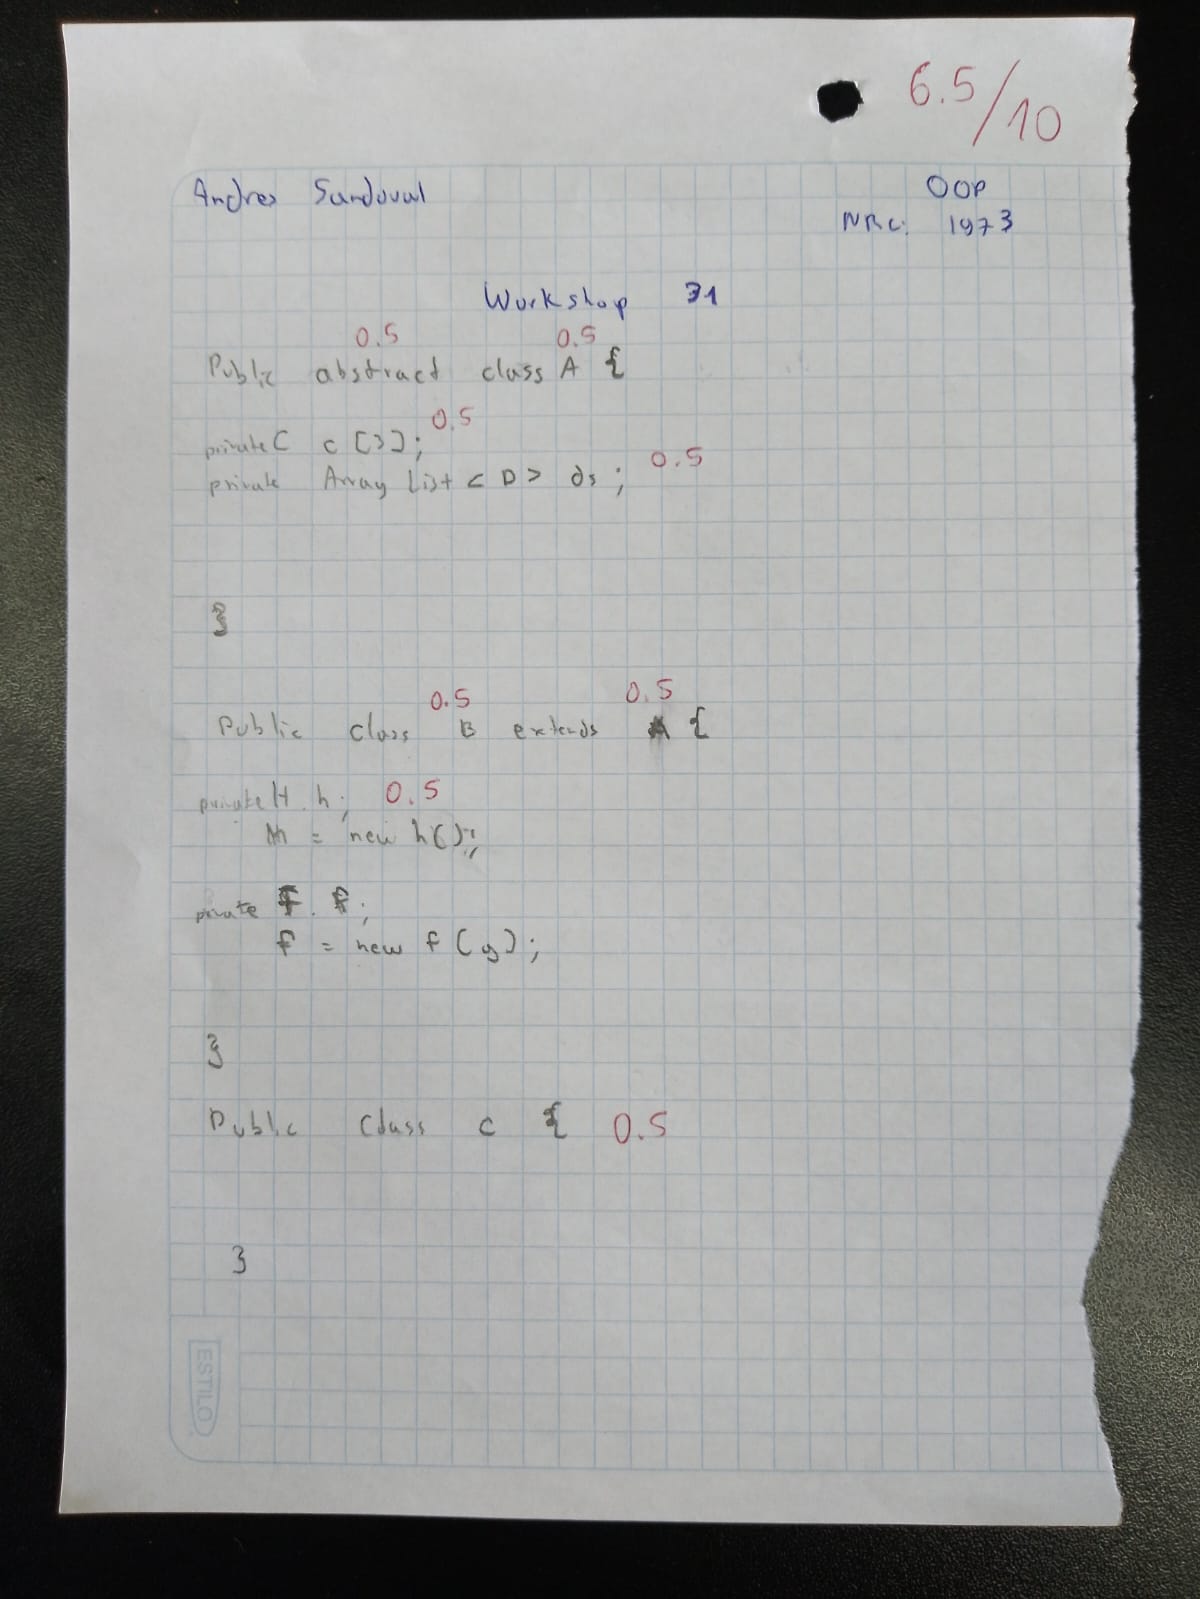 6.5/10
Andres Sandoval OOP
NRC: 1973
Workshop 31
0.5 0.5
Public abstract class A {
0.5
private C c [3];
0.5
private Array List < D > ds ;
}
0.5 0.5
Public class B extends A {
private H h; 0.5
h = new h();
private f f;
f = new f(g);
}
Public Class c { 0.5
}
ESTILO